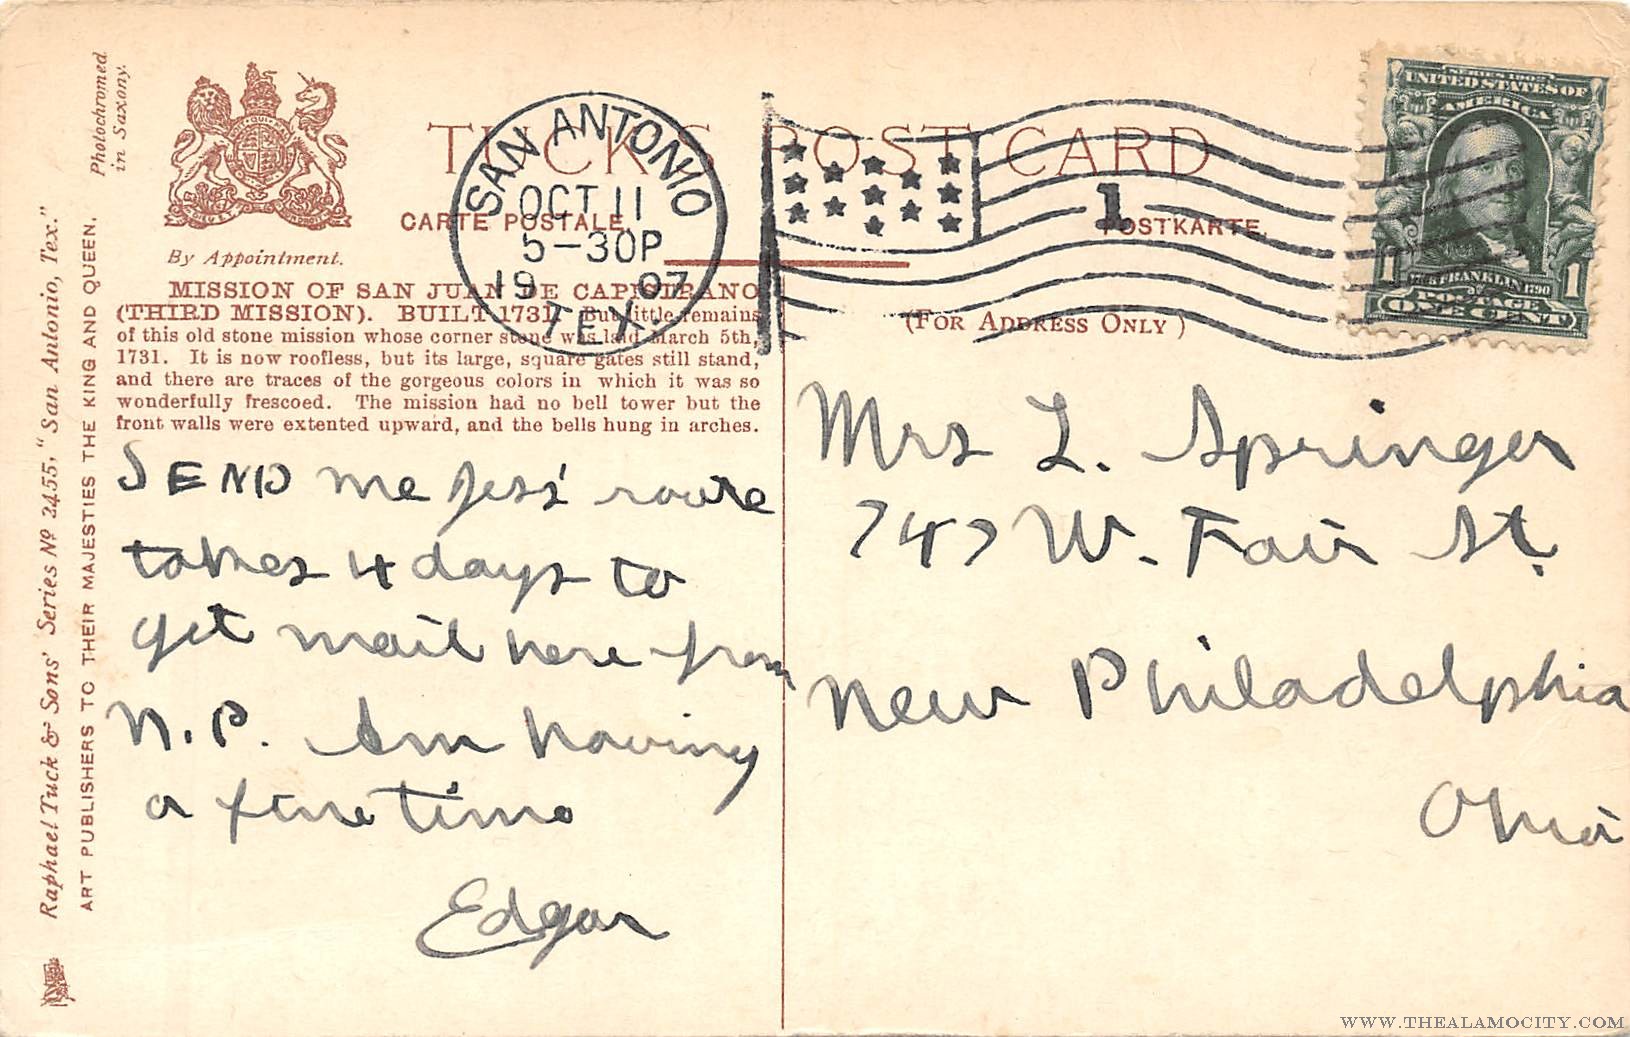 Photochromed
in Saxony.
Raphael Tuck & Sons' Series No 2455, "San Antonio, Tex."
ART PUBLISHERS TO THEIR MAJESTIES THE KING AND QUEEN.
By Appointment.
TUCK'S POST CARD
CARTE POSTALE.
POSTKARTE.
SAN ANTONIO
OCT 11
5-30P
1907
TEX.
1
SERIES 1902
UNITED STATES OF
AMERICA
FRANKLIN
POSTAGE
1 ONE CENT 1
MISSION OF SAN JUAN DE CAPISTRANO
(THIRD MISSION). BUILT 1731. But little remains
of this old stone mission whose corner stone was laid March 5th,
1731. It is now roofless, but its large, square gates still stand,
and there are traces of the gorgeous colors in which it was so
wonderfully frescoed. The mission had no bell tower but the
front walls were extented upward, and the bells hung in arches.
(FOR ADDRESS ONLY)
SEND me Jess' route
takes 4 days to
get mail here from
N.P. Am having
a fine time
Edgar
Mrs L. Springer
747 W. Fair St.
New Philadelphia
Ohio
WWW.THEALAMOCITY.COM